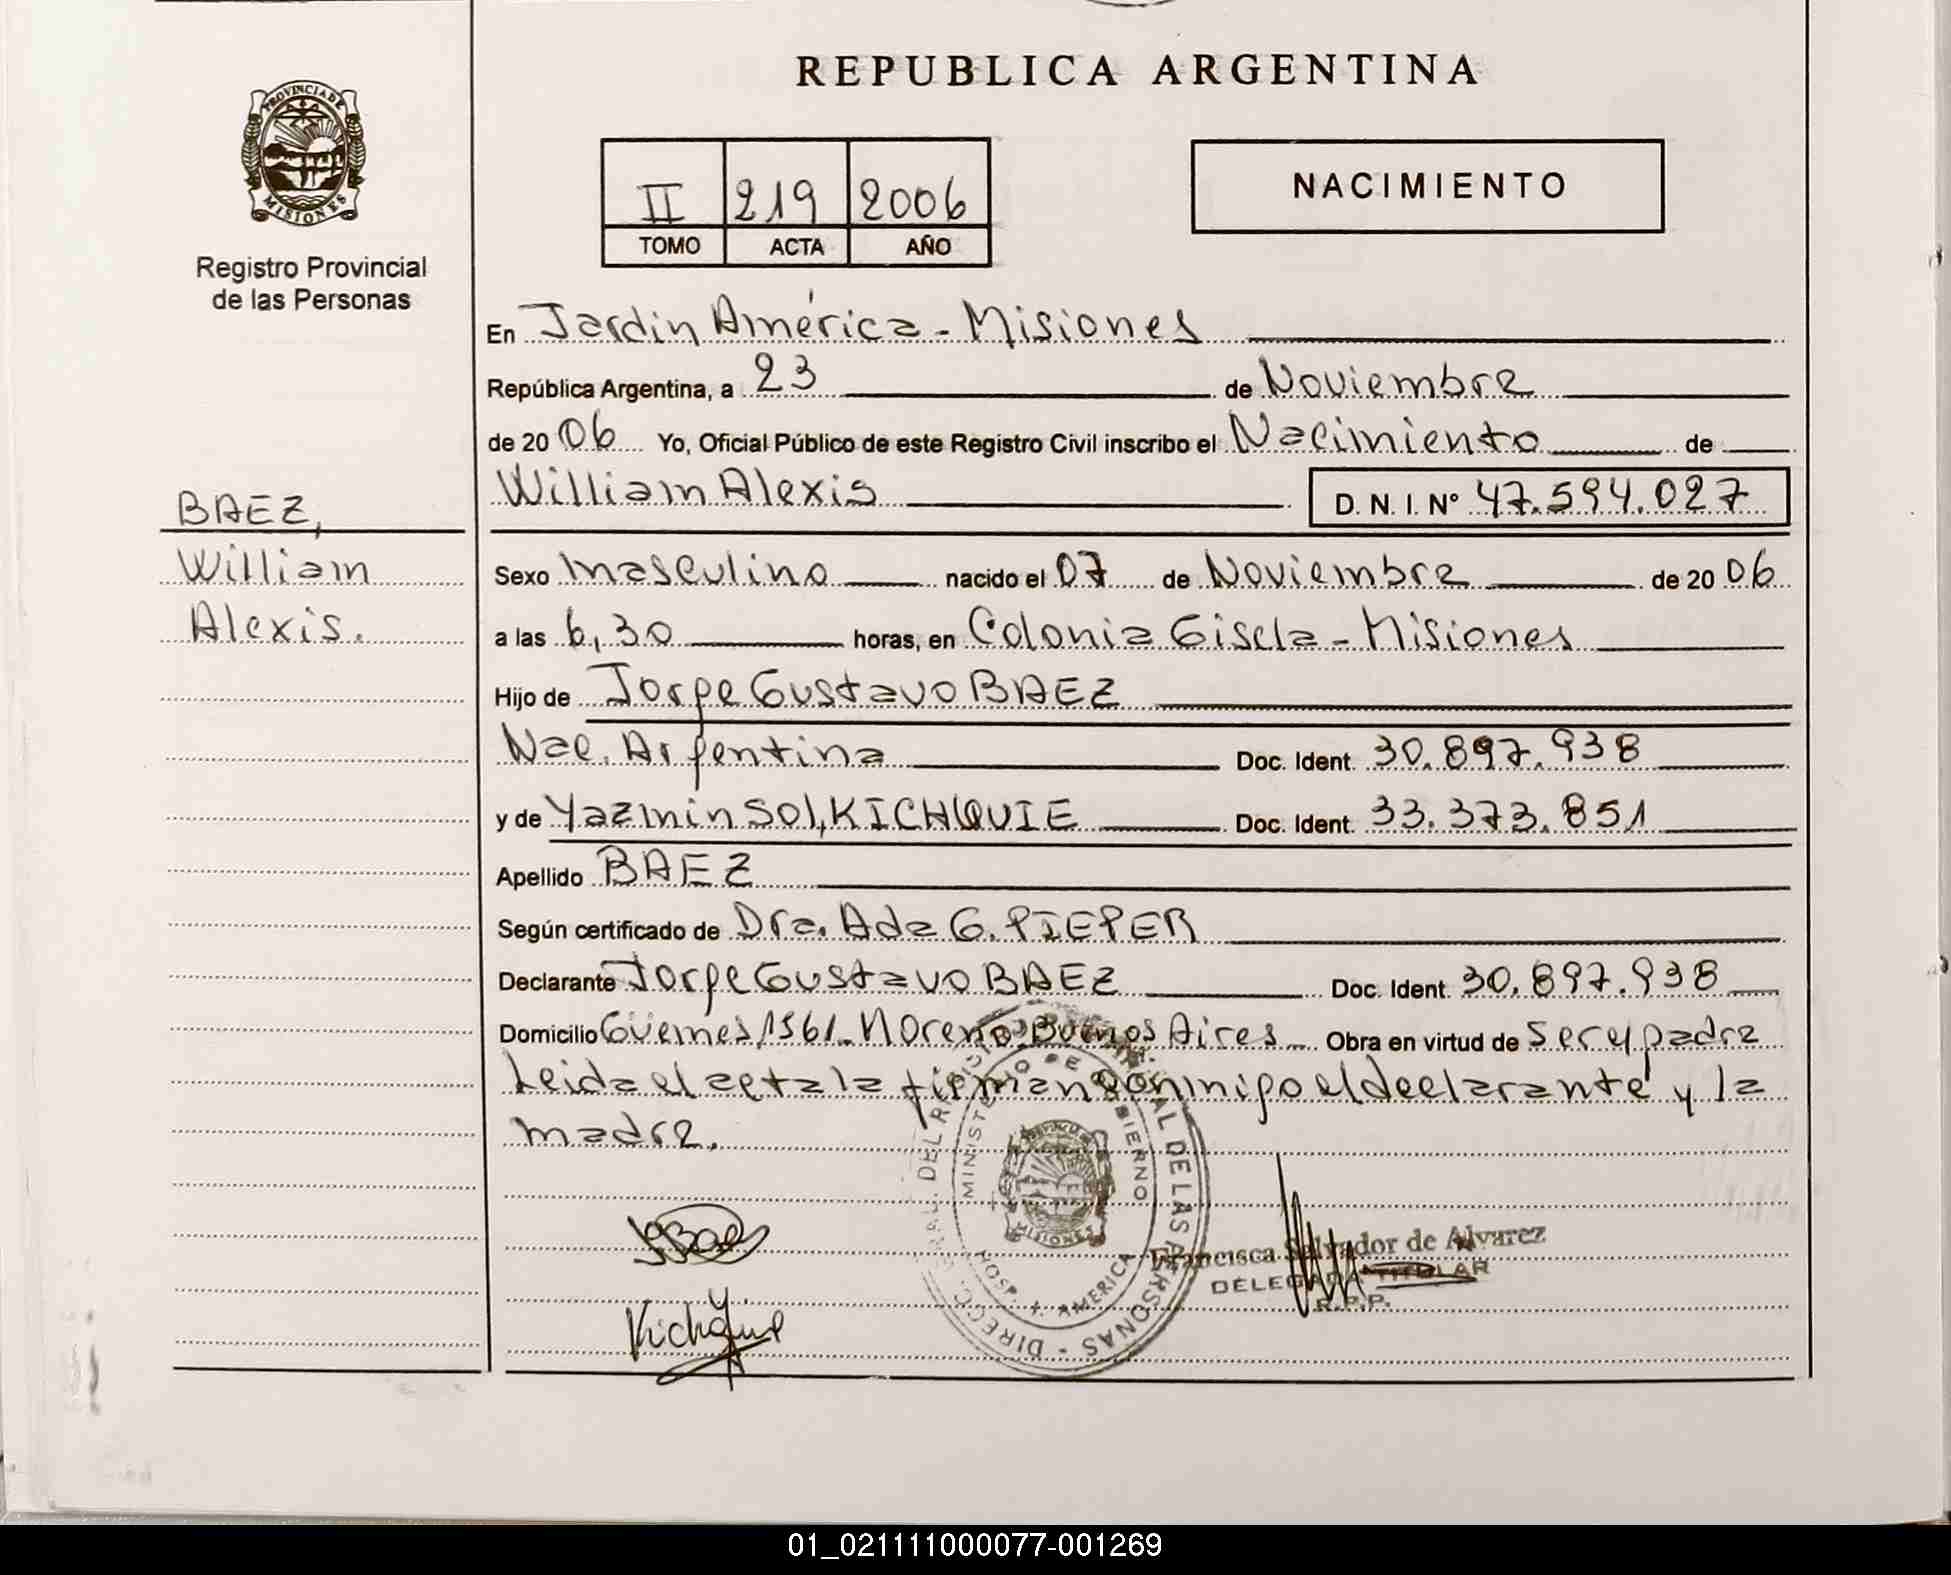 REPUBLICA ARGENTINA
PROVINCIA DE
MISIONES
Registro Provincial
de las Personas
II 219 2006
TOMO ACTA AÑO
NACIMIENTO
En Jardin América - Misiones
República Argentina, a 23 de Noviembre
de 20 06 Yo, Oficial Público de este Registro Civil inscribo el Nacimiento de
William Alexis D. N. I. Nº 47.594.027
BAEZ,
William
Alexis.
Sexo masculino nacido el 07 de Noviembre de 20 06
a las 6,30 horas, en Colonia Gisela - Misiones
Hijo de Jorge Gustavo BAEZ
Nac. Argentina Doc. Ident. 30.897.938
y de Yazmin Sol, KICHQUIE Doc. Ident. 33.373.851
Apellido BAEZ
Según certificado de Dra. Ada G. PIEPER
Declarante Jorge Gustavo BAEZ Doc. Ident. 30.897.938
Domicilio Güemes 1561 - Moreno Buenos Aires Obra en virtud de ser el padre
Leida el acta la firman conmigo el declarante y la
madre.
MINISTERIO DE GOBIERNO
DE LAS PERSONAS - DIRECC.
HOSP. J. AMERICA
MISIONES
Francisca Salvador de Alvarez
DELEGADA TITULAR
R.P.P.
01_021111000077-001269